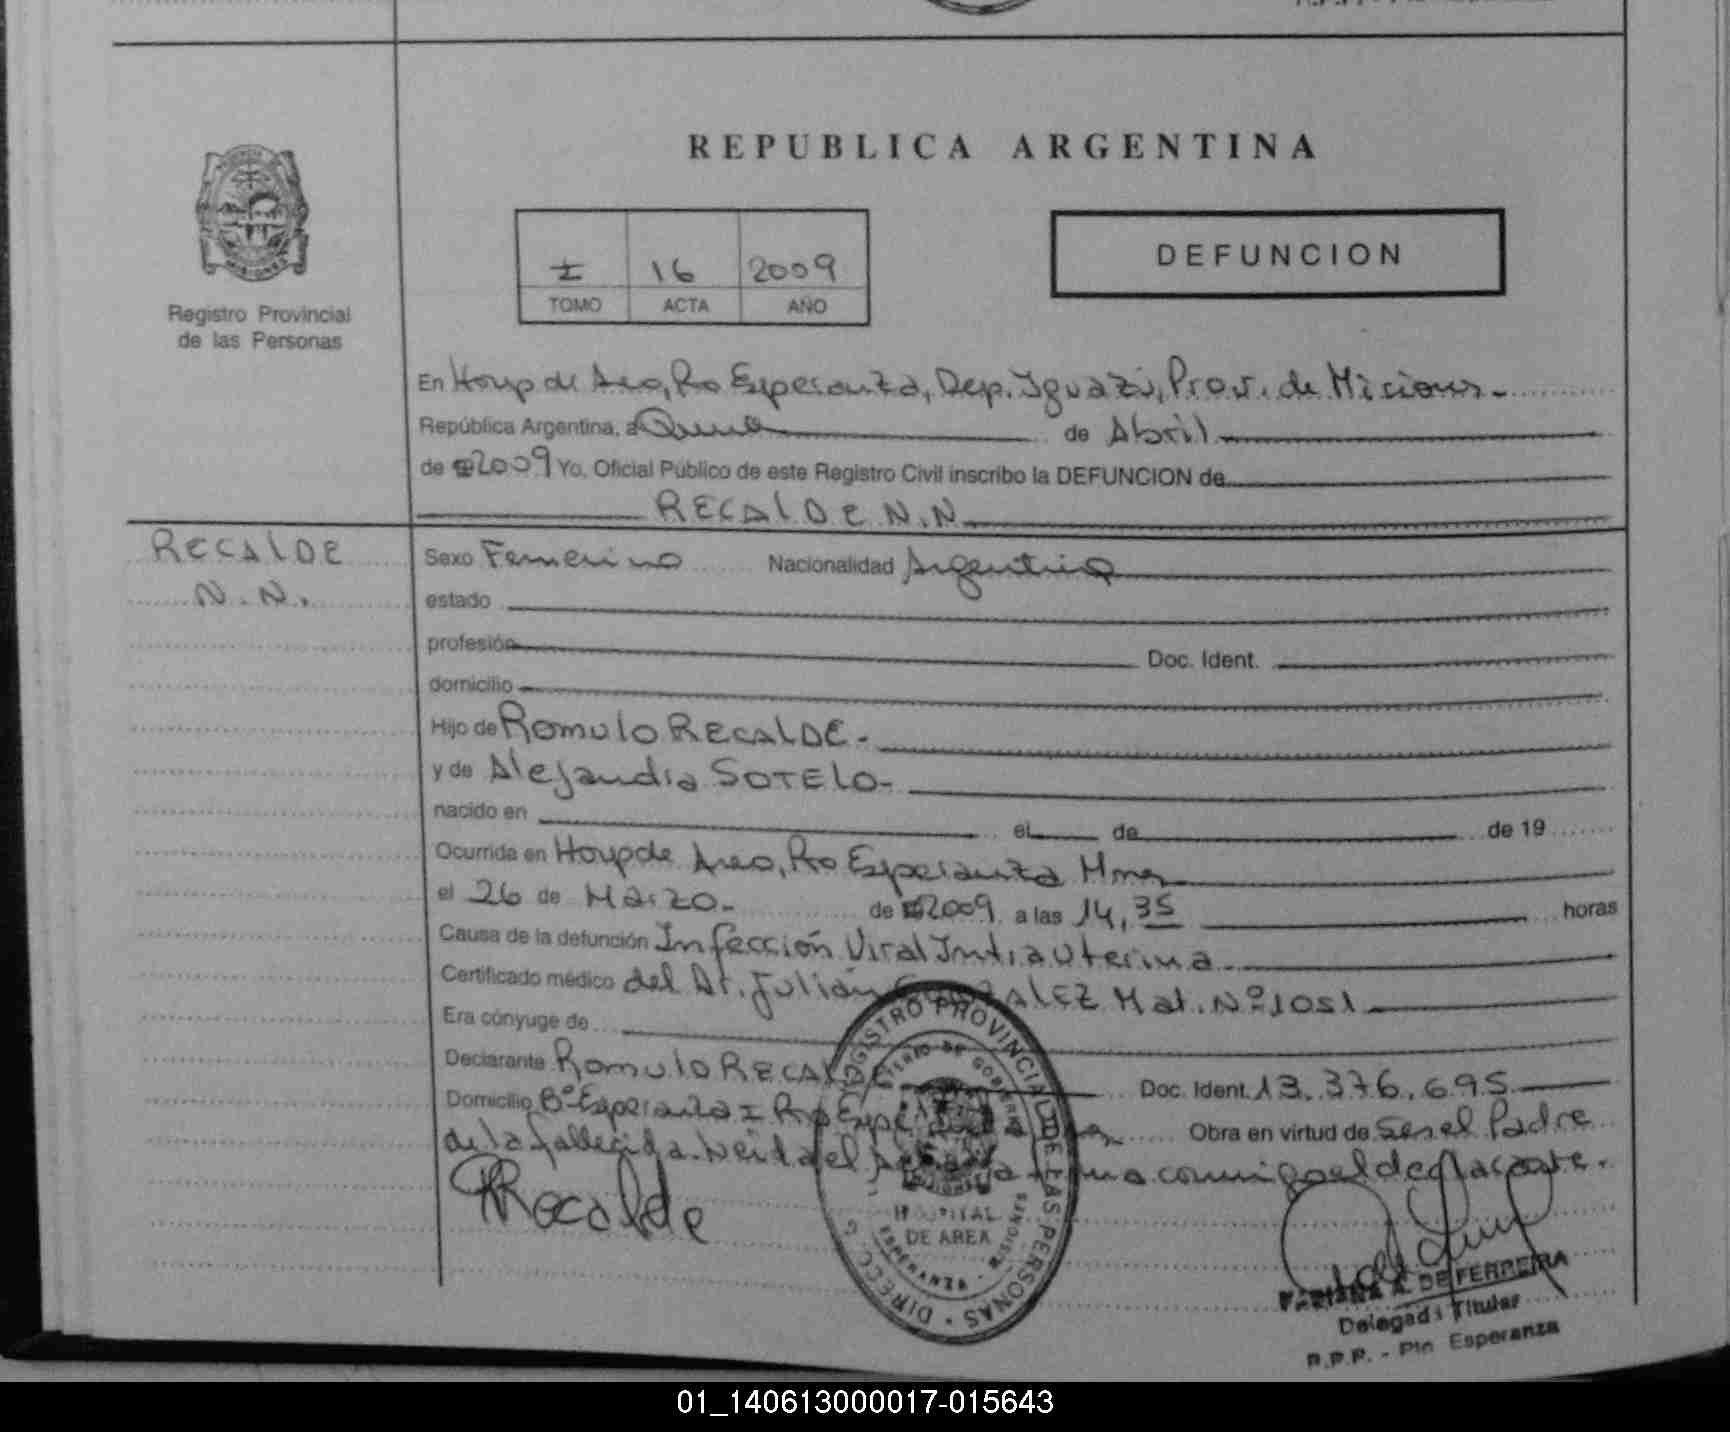 REPUBLICA ARGENTINA
Registro Provincial
de las Personas
I 16 2009
TOMO ACTA AÑO
DEFUNCION
En Hosp de Area, Pto Esperanza, Dep. Iguazú, Prov. de Misiones
República Argentina, a de Abril
de 2009 Yo, Oficial Público de este Registro Civil inscribo la DEFUNCION de
RECALDE N.N.
RECALDE
N.N.
Sexo Femenino Nacionalidad Argentina
estado
profesión Doc. Ident.
domicilio
Hijo de Romulo RECALDE.
y de Alejandra SOTELO.
nacido en el de de 19
Ocurrida en Hosp de Area, Pto Esperanza Mnes
el 26 de Marzo. de 2009 a las 14,35 horas
Causa de la defunción Infección Viral Intrauterina
Certificado médico del Dr. Julián GONZALEZ Mat. Nº 1051
Era cónyuge de
Declarante Romulo RECALDE Doc. Ident. 13.376.695
Domicilio Bº Esperanza I Pto Esperanza Obra en virtud de ser el Padre
de la fallecida. Leida el Acta la firma conmigo el declarante.
RRecalde
DIRECC. G. REGISTRO PROVINCIAL DE LAS PERSONAS
MINISTERIO DE GOBIERNO
HOSPITAL
DE AREA
ESPERANZA - MISIONES
A. DE FERREIRA
Delegada Titular
R.P.P. - Pto Esperanza
01_140613000017-015643